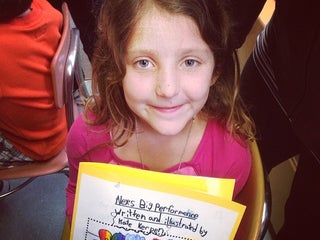 Ne's Big Performance
Written and illustrated by
Kate